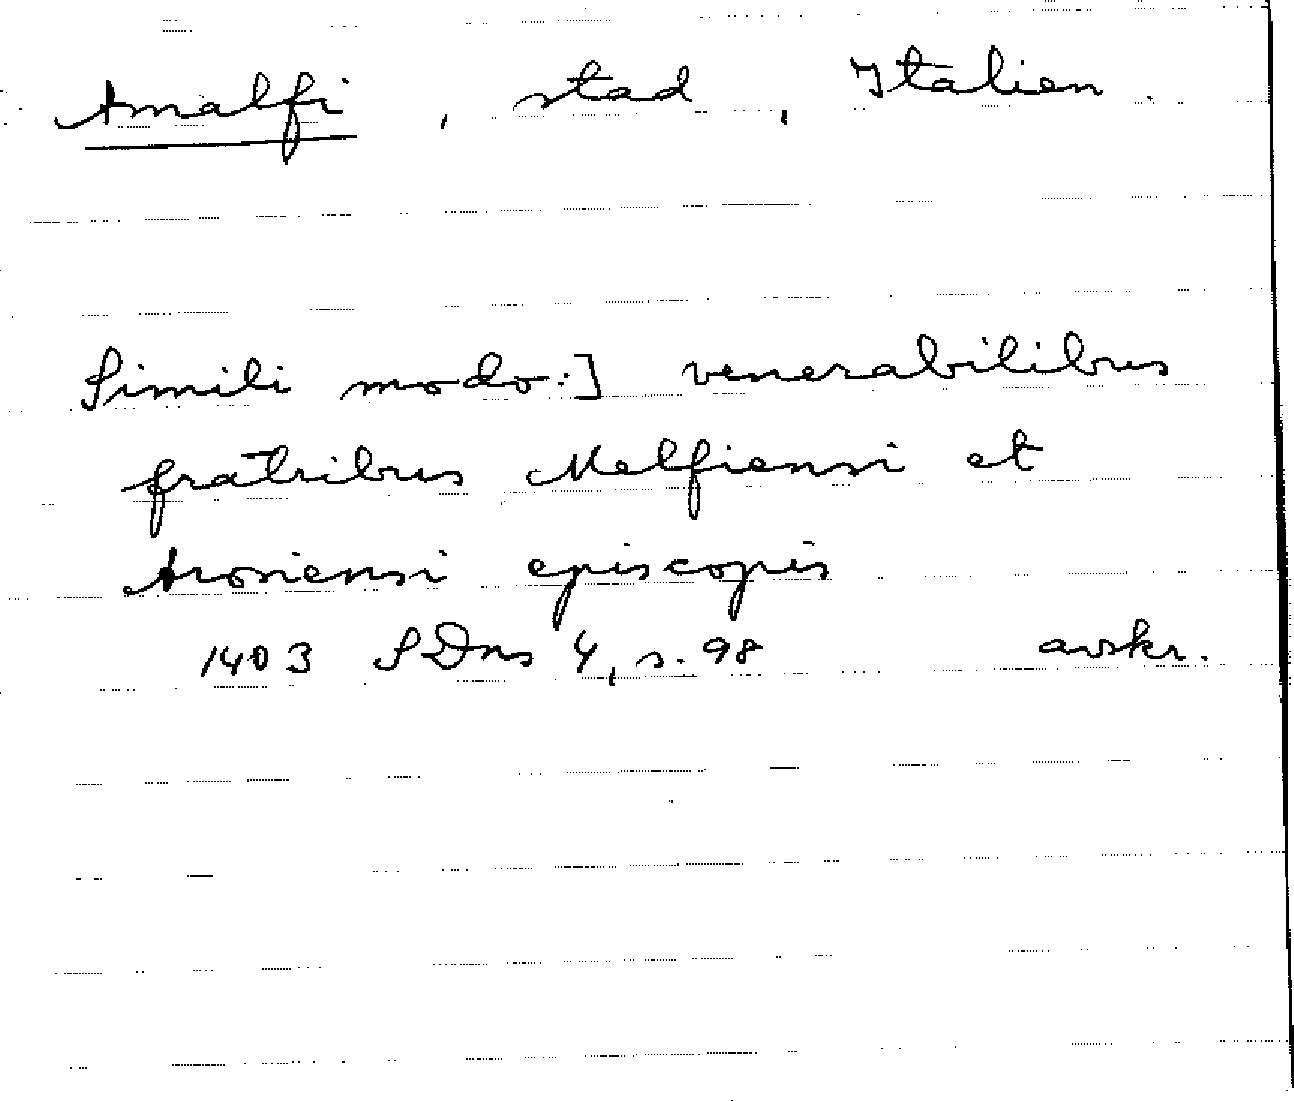 Amalfi, stad, Italien.
Simili modo:] venerabilibus
fratribus Melfiensi et
Arosiensi episcopis
1403 SDns 4, s. 98 avskr.